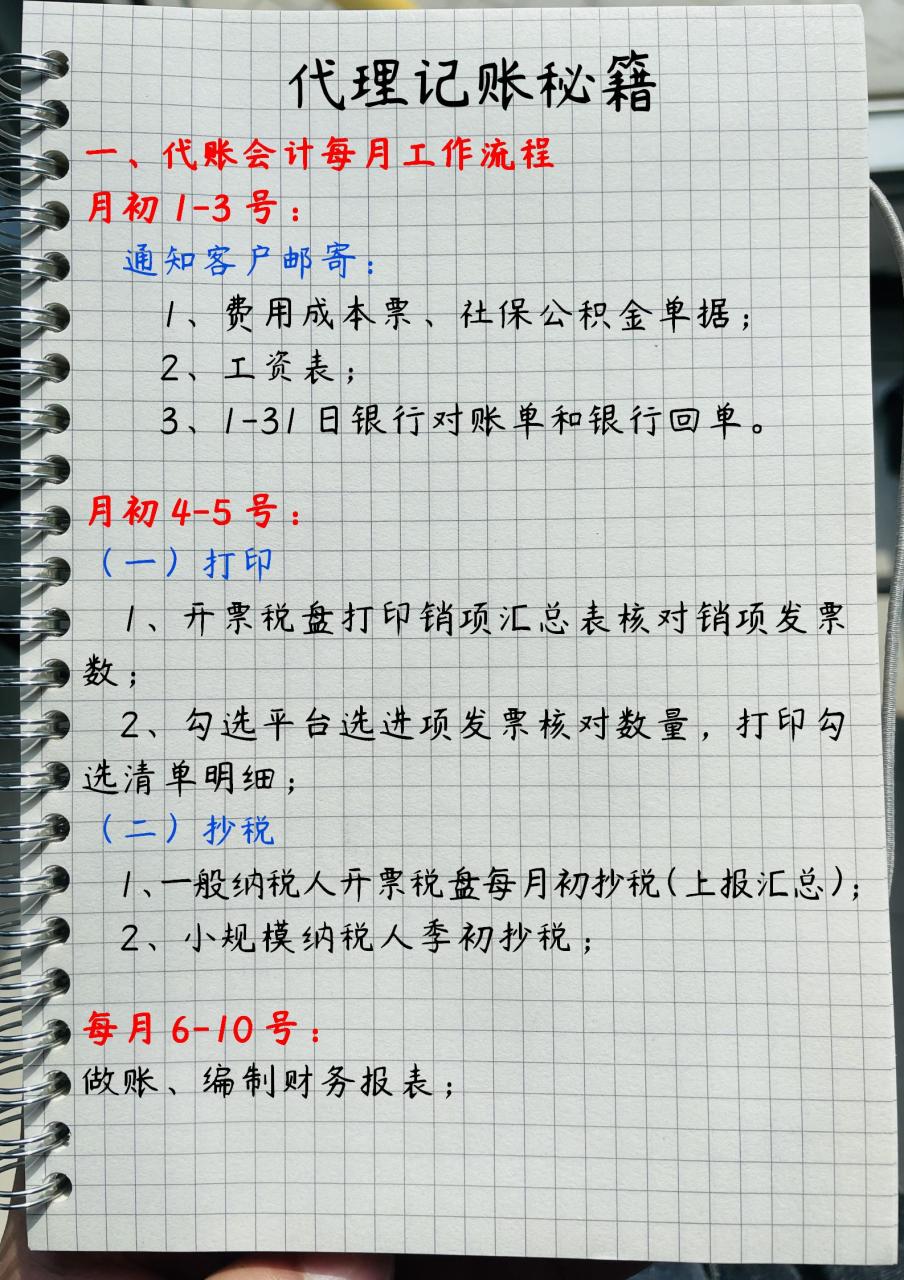 代理记账秘籍
一、代账会计每月工作流程
月初1-3号：
通知客户邮寄：
1、费用成本票、社保公积金单据；
2、工资表；
3、1-31日银行对账单和银行回单。
月初4-5号：
（一）打印
1、开票税盘打印销项汇总表核对销项发票
数；
2、勾选平台选进项发票核对数量，打印勾
选清单明细；
（二）抄税
1、一般纳税人开票税盘每月初抄税（上报汇总）；
2、小规模纳税人季初抄税；
每月6-10号：
做账、编制财务报表；